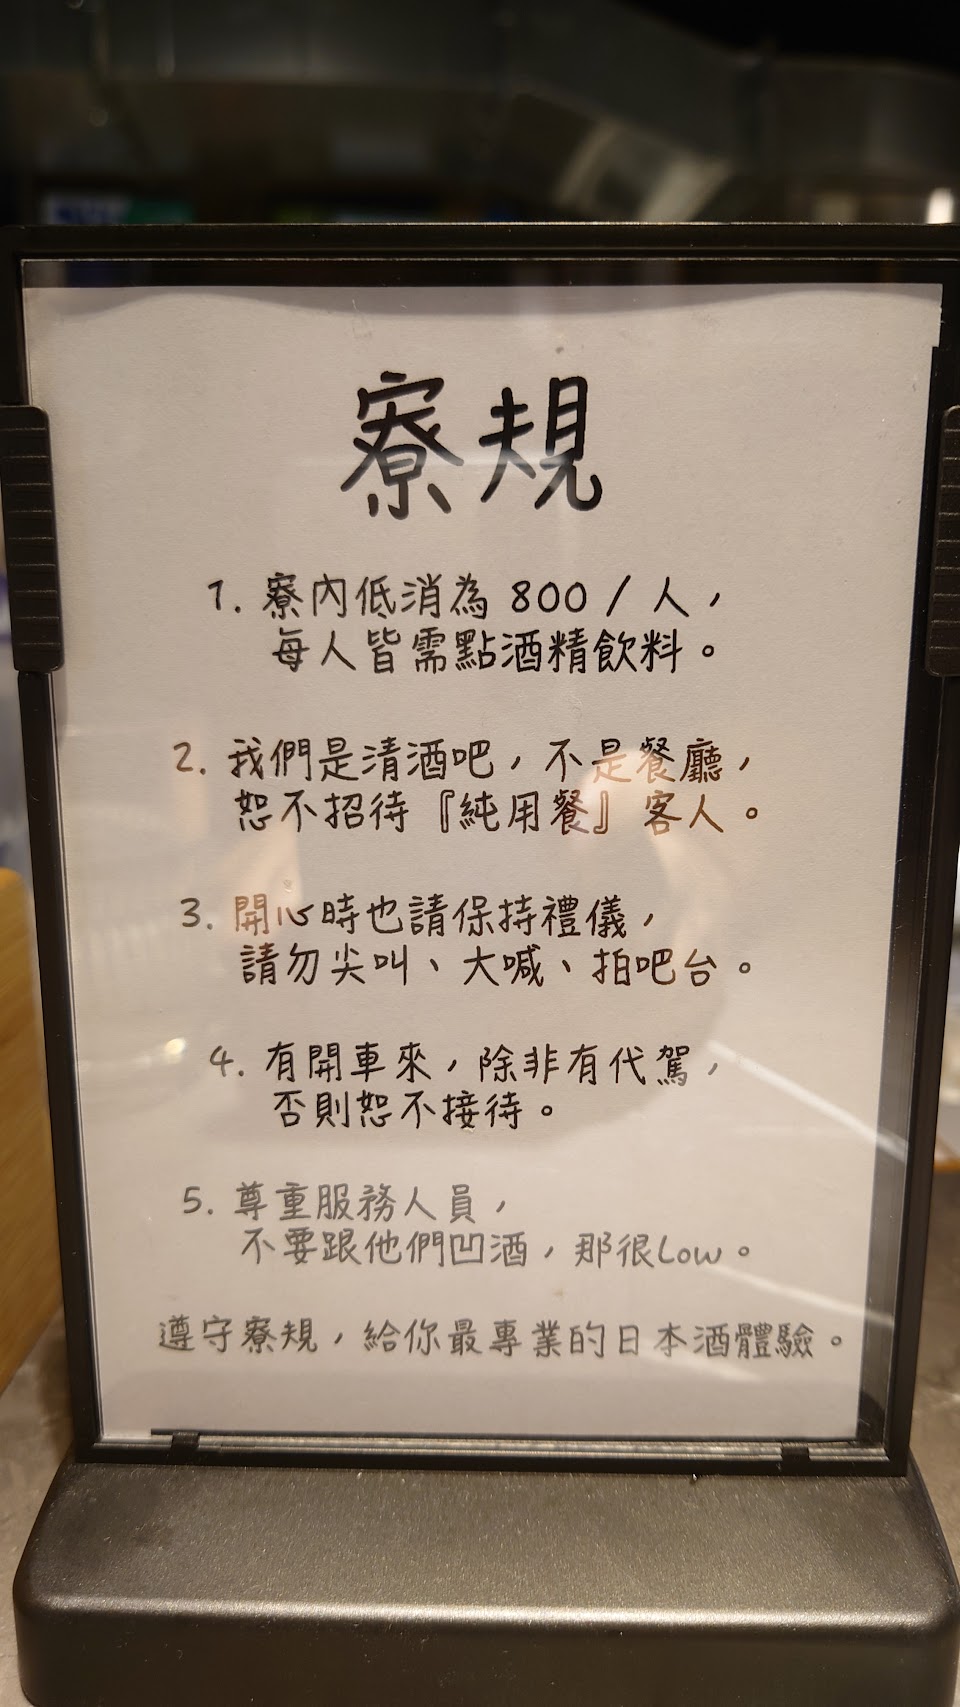 寮規
1. 寮內低消為 800 / 人，
每人皆需點酒精飲料。
2. 我們是清酒吧，不是餐廳，
恕不招待『純用餐』客人。
3. 開心時也請保持禮儀，
請勿尖叫、大喊、拍吧台。
4. 有開車來，除非有代駕，
否則恕不接待。
5. 尊重服務人員，
不要跟他們凹酒，那很Low。
遵守寮規，給你最專業的日本酒體驗。